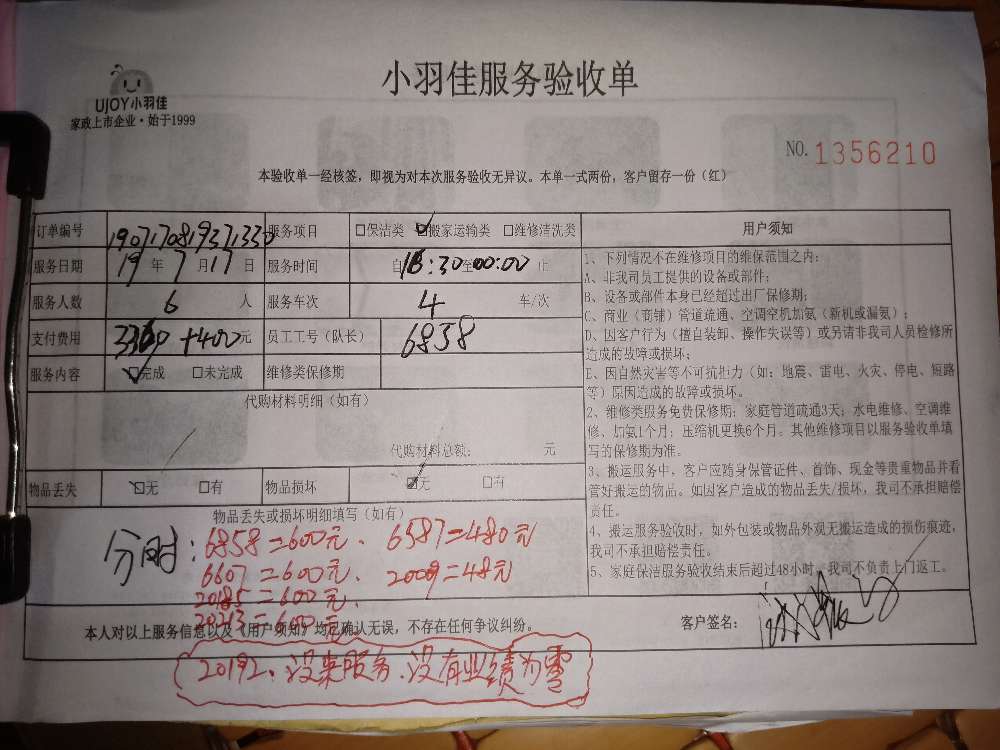 小羽佳服务验收单
UJOY小羽佳
家政上市企业·始于1999
NO. 1356210
本验收单一经核签，即视为对本次服务验收无异议。本单一式两份，客户留存一份（红）
订单编号 1907170819371330 服务项目 □保洁类 ☑搬家运输类 □维修清洗类 用户须知
服务日期 19 年 7 月 17 日 服务时间 自 18:30 至 00:00 止
服务人数 6 人 服务车次 4 车/次
支付费用 3360 +400 元 员工工号（队长） 6858
服务内容 ☑完成 □未完成 维修类保修期
代购材料明细（如有）
代购材料总额： 元
物品丢失 ☑无 □有 物品损坏 ☑无 □有
物品丢失或损坏明细填写（如有）
分时：6858=600元、6587=480元
6607=600元、2009=48元
20185=600元、
20213=600元
1、下列情况不在维修项目的维保范围之内：
A、非我司员工提供的设备或部件；
B、设备或部件本身已经超过出厂保修期；
C、商业（商铺）管道疏通、空调空机加氨（新机或漏氨）；
D、因客户行为（擅自装卸、操作失误等）或另请非我司人员检修所
造成的故障或损坏；
E、因自然灾害等不可抗拒力（如：地震、雷电、火灾、停电、短路
等）原因造成的故障或损坏。
2、维修类服务免费保修期：家庭管道疏通3天；水电维修、空调维
修、加氨1个月；压缩机更换6个月。其他维修项目以服务验收单填
写的保修期为准。
3、搬运服务中，客户应随身保管证件、首饰、现金等贵重物品并看
管好搬运的物品。如因客户造成的物品丢失/损坏，我司不承担赔偿
责任。
4、搬运服务验收时，如外包装或物品外观无搬运造成的损伤痕迹，
我司不承担赔偿责任。
5、家庭保洁服务验收结束后超过48小时，我司不负责上门返工。
本人对以上服务信息以及《用户须知》均已确认无误，不存在任何争议纠纷。 客户签名：
20192、没来服务、没有业绩为零